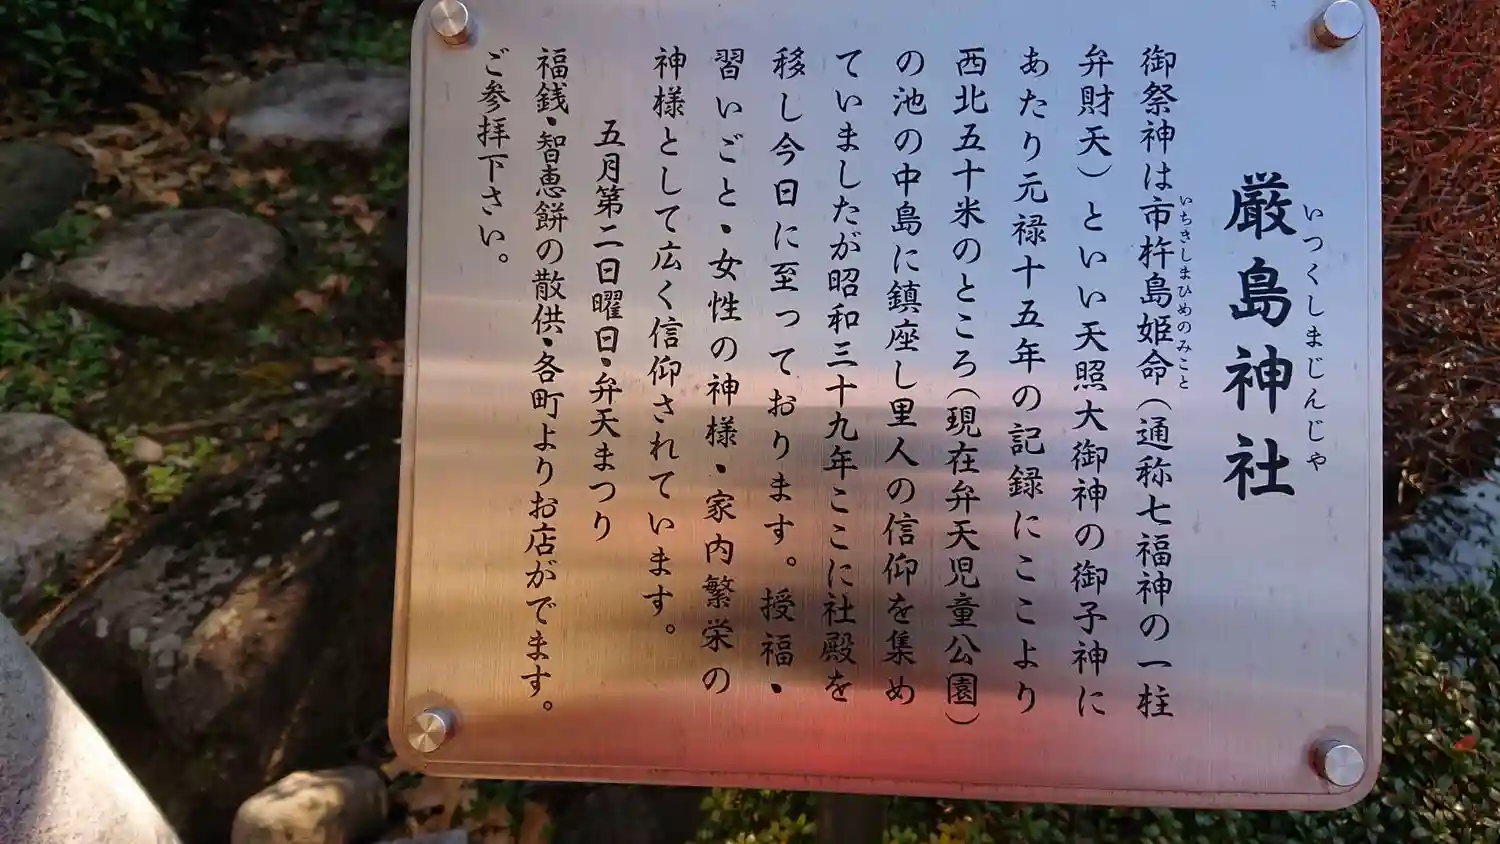 いつくしまじんじゃ
厳島神社
いちきしまひめのみこと
御祭神は市杵島姫命（通称七福神の一柱
弁財天）といい天照大御神の御子神に
あたり元禄十五年の記録にここより
西北五十米のところ（現在弁天児童公園）
の池の中島に鎮座し里人の信仰を集め
ていましたが昭和三十九年ここに社殿を
移し今日に至っております。授福・
習いごと・女性の神様・家内繁栄の
神様として広く信仰されています。
五月第二日曜日・弁天まつり
福銭・智恵餅の散供・各町よりお店がでます。
ご参拝下さい。